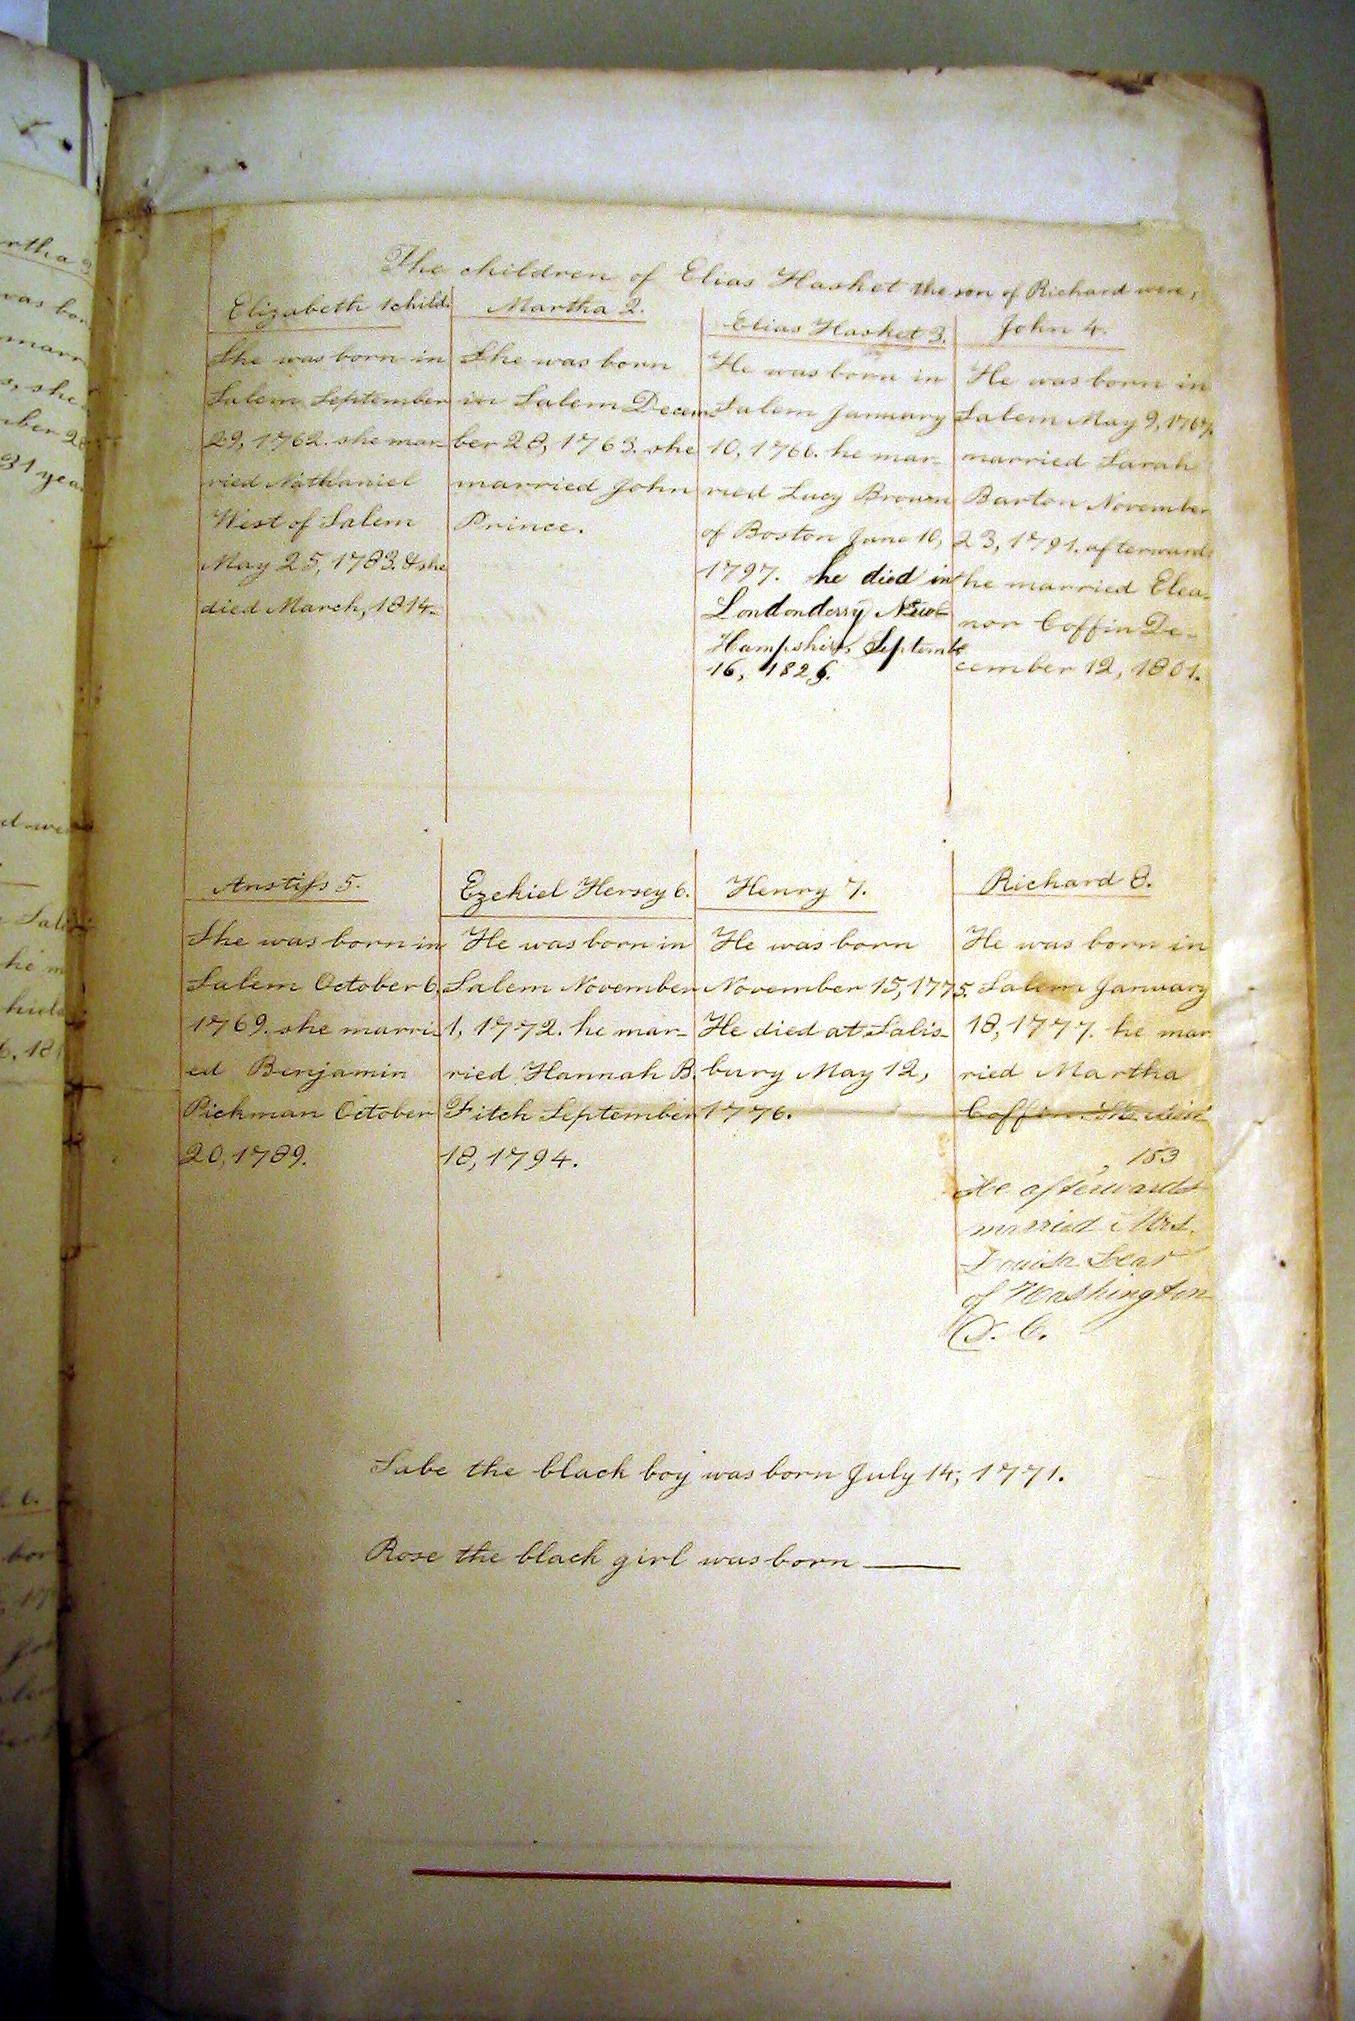 The children of Elias Hasket the son of Richard were,
Elizabeth 1 child.
She was born in
Salem September
29, 1762. she mar-
ried Nathaniel
West of Salem
May 25, 1783. & she
died March, 1814.
Martha 2.
She was born
in Salem Decem-
ber 28, 1763. she
married John
Prince.
Elias Hasket 3.
He was born in
Salem January
10, 1766. he mar-
ried Lucy Brown
of Boston June 10,
1797. he died in
Londonderry New
Hampshire, Septembr
16, 1826.
John 4.
He was born in
Salem May 9, 1767.
married Sarah
Barton November
23, 1791. afterwards
he married Elea-
nor Coffin De-
cember 12, 1801.
Anstiss 5.
She was born in
Salem October 6,
1769. she marri-
ed Benjamin
Pickman October
20, 1789.
Ezekiel Hersey 6.
He was born in
Salem November
1, 1772. he mar-
ried Hannah B.
Fitch September
18, 1794.
Henry 7.
He was born
November 15, 1775.
He died at Salis-
bury May 12,
1776.
Richard 8.
He was born in
Salem January
18, 1777. he mar
ried Martha
Coffin. She died
183
He afterwards
married Mrs.
Louisa Lear
of Washington
D. C.
Sabe the black boy was born July 14, 1771.
Rose the black girl was born